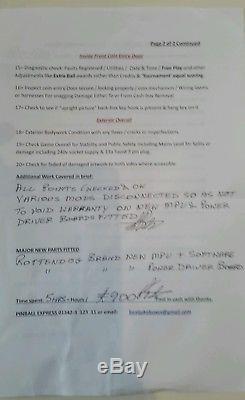 Page 2 of 2 Continued
Inside Front Coin Entry Door
15= Diagnostic check: Faults Registered / Utilities / Date & Time / Free Play and other
Adjustments like Extra Ball awards rather than Credits & Tournament equal scoring.
16= Inspect coin entry Door secure / locking property / coin mechanism / Wiring looms
or Harnesses for snagging Damage Either To or From Cash Box Removal
17= Check to see if "upright picture" back box key hook is present & hang key on it
Exterior Overall
18= Exterior Bodywork Condition with any flaws / cracks or imperfections.
19= Check Game Overall for Stability and Public Safety including Mains Lead for Splits or
damage including 240v socket supply & 13a fused 3 pin plug.
20= Check for faded of damaged artwork to both sides where accessible.
Additional Work Covered in brief:
ALL POINTS CHECKED OK
VARIOUS MODS DISCONNECTED SO AS NOT
TO VOID WARRANTY ON NEW MPU & POWER
DRIVER BOARDS FITTED
MAJOR NEW PARTS FITTED
ROTTENDOG BRAND NEW MPU + SOFTWARE
" " " POWER DRIVER BOARD
Time spent 5 HRS = Hours / £900 Paid in cash with thanks.
PINBALL EXPRESS 01342 323 11 or email: @gmail.com